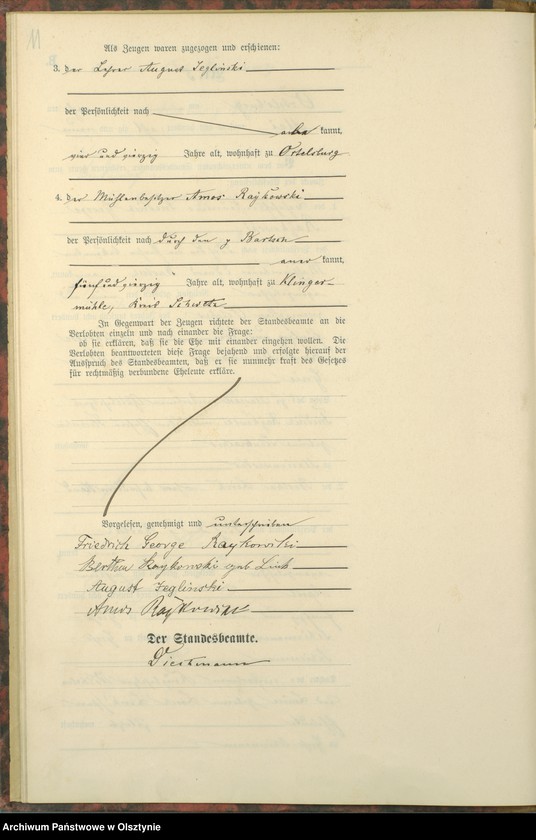 11
Als Zeugen waren zugezogen und erschienen:
3. der Lehrer August Jeglinski
der Persönlichkeit nach
kannt,
vier und vierzig Jahre alt, wohnhaft zu Ortelsburg
4. der Mühlenbesitzer Amos Raykowski
der Persönlichkeit nach durch den p Bartsch
kannt,
fünf und vierzig Jahre alt, wohnhaft zu Klinger-
mühle, Kreis Schwetz
In Gegenwart der Zeugen richtete der Standesbeamte an die
Verlobten einzeln und nach einander die Frage:
ob sie erklären, daß sie die Ehe mit einander eingehen wollen. Die
Verlobten beantworteten diese Frage bejahend und erfolgte hierauf der
Ausspruch des Standesbeamten, daß er sie nunmehr kraft des Gesetzes
für rechtmäßig verbundene Eheleute erkläre.
Vorgelesen, genehmigt und unterschrieben
Friedrich George Raykowski
Bertha Raykowski geb Link
August Jeglinski
Amos Raykowski
Der Standesbeamte.
Archiwum Państwowe w Olsztynie